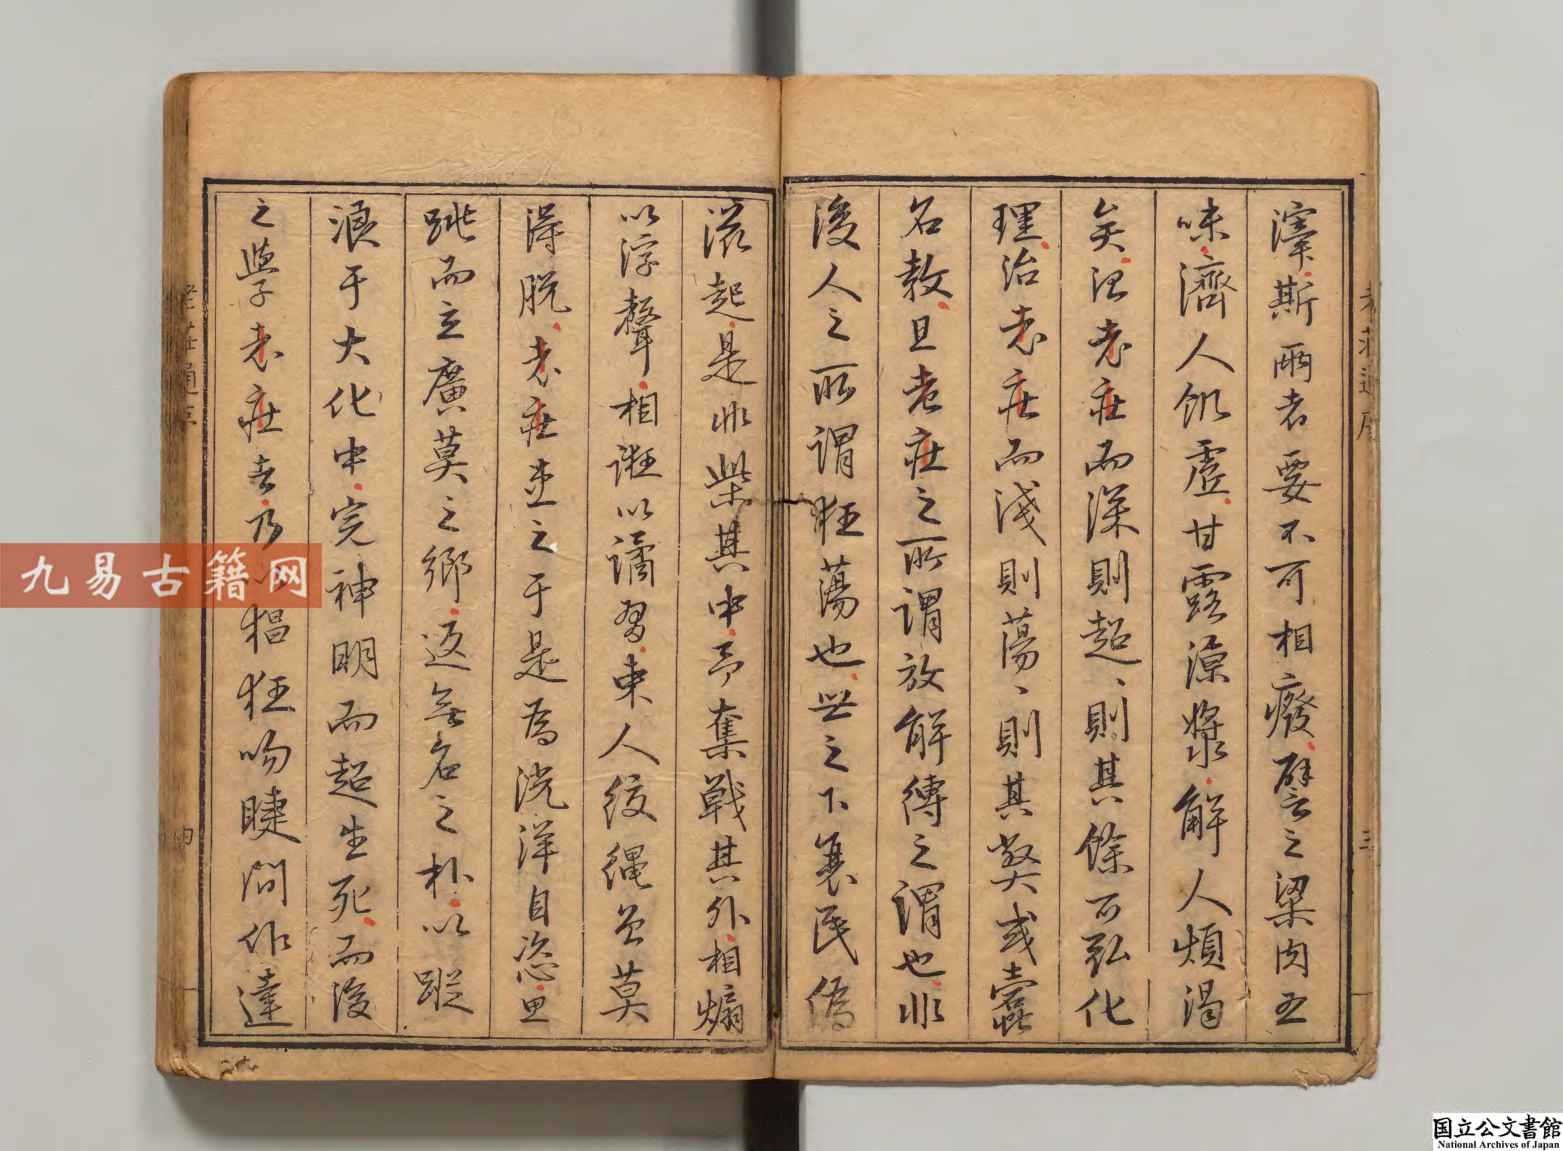 滓斯兩者要不可相癈譬之梁肉五
味濟人飢虛甘露凉漿解人煩渴
矣治老庄而深則超〻則其餘可弘化
理治老庄而淺則蕩〻則其獘或蠧
名教且老庄之所謂放解縛之謂也非
後人之所謂狂蕩也世之下衰民偽
滋起是非柴其中予奪戰其外相煽
以浮聲相誑以譎習束人纆繩莫
得脱老庄患之于是為洸洋自恣思
跳而立廣莫之鄉返無名之朴以蹤
浪于大化中完神明而超生死而後
之學老庄者乃猖狂吻睫間作達
老莊通
三
九易古籍网
国立公文書館
National Archives of Japan